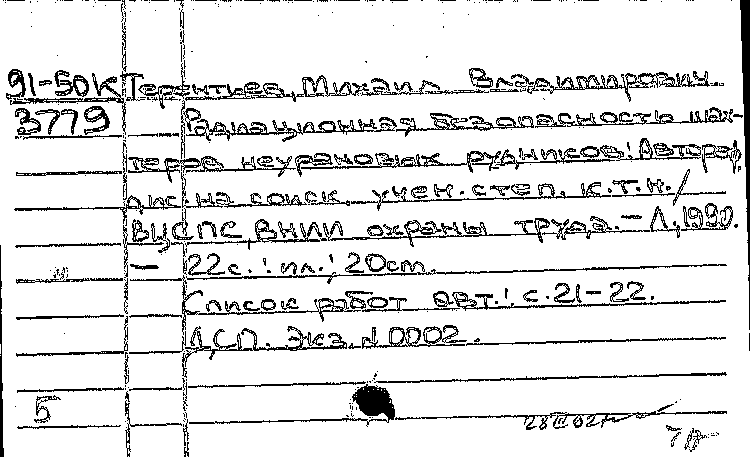 91-50К Терентьев, Михаил Владимирович.
3779 Радиационная безопасность шах-
теров неурановых рудников: Автореф.
дис. на соиск. учен. степ. к.т.н. /
ВЦСПС, ВНИИ охраны труда. - Л., 1990.
- 22 с.: ил.; 20 cm.
Список работ авт.: с. 21-22.
ДСП. Экз. N 0002.
5